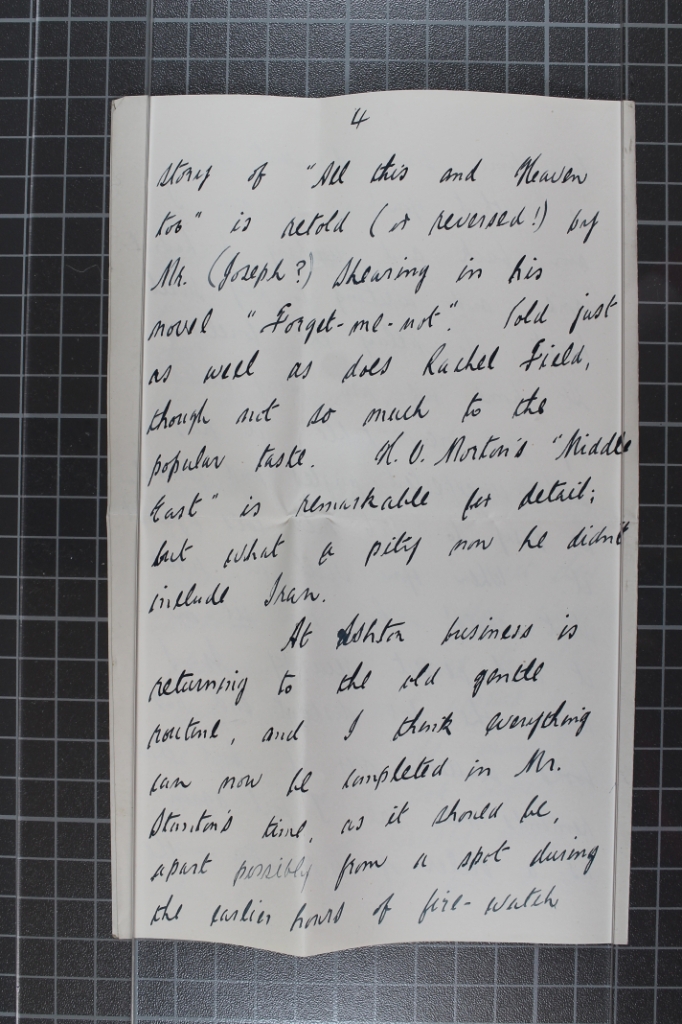 4
story of "All this and Heaven
too" is retold (or reversed!) by
Mr. (Joseph?) Shearing in his
novel "Forget-me-not". Told just
as well as does Rachel Field,
though not so much to the
popular taste. H. V. Morton's "Middle
East" is remarkable for detail;
but what a pity now he didn't
include Iran.
At Ashton business is
returning to the old gentle
routine, and I think everything
can now be completed in Mr.
Stanton's time, as it should be,
apart possibly from a spot during
the earlier hours of fire-watch